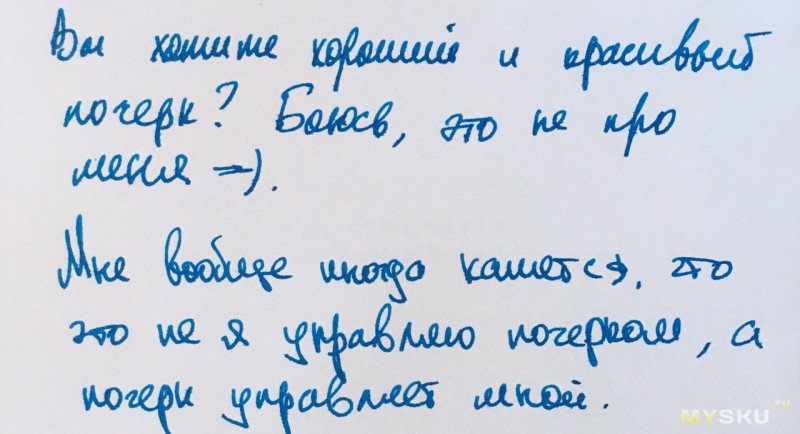 Вы хотите хороший и красивый
почерк? Боюсь, это не про
меня =).
Мне вообще иногда кажется, что
это не я управляю почерком, а
почерк управляет мной.
MYSKU.RU